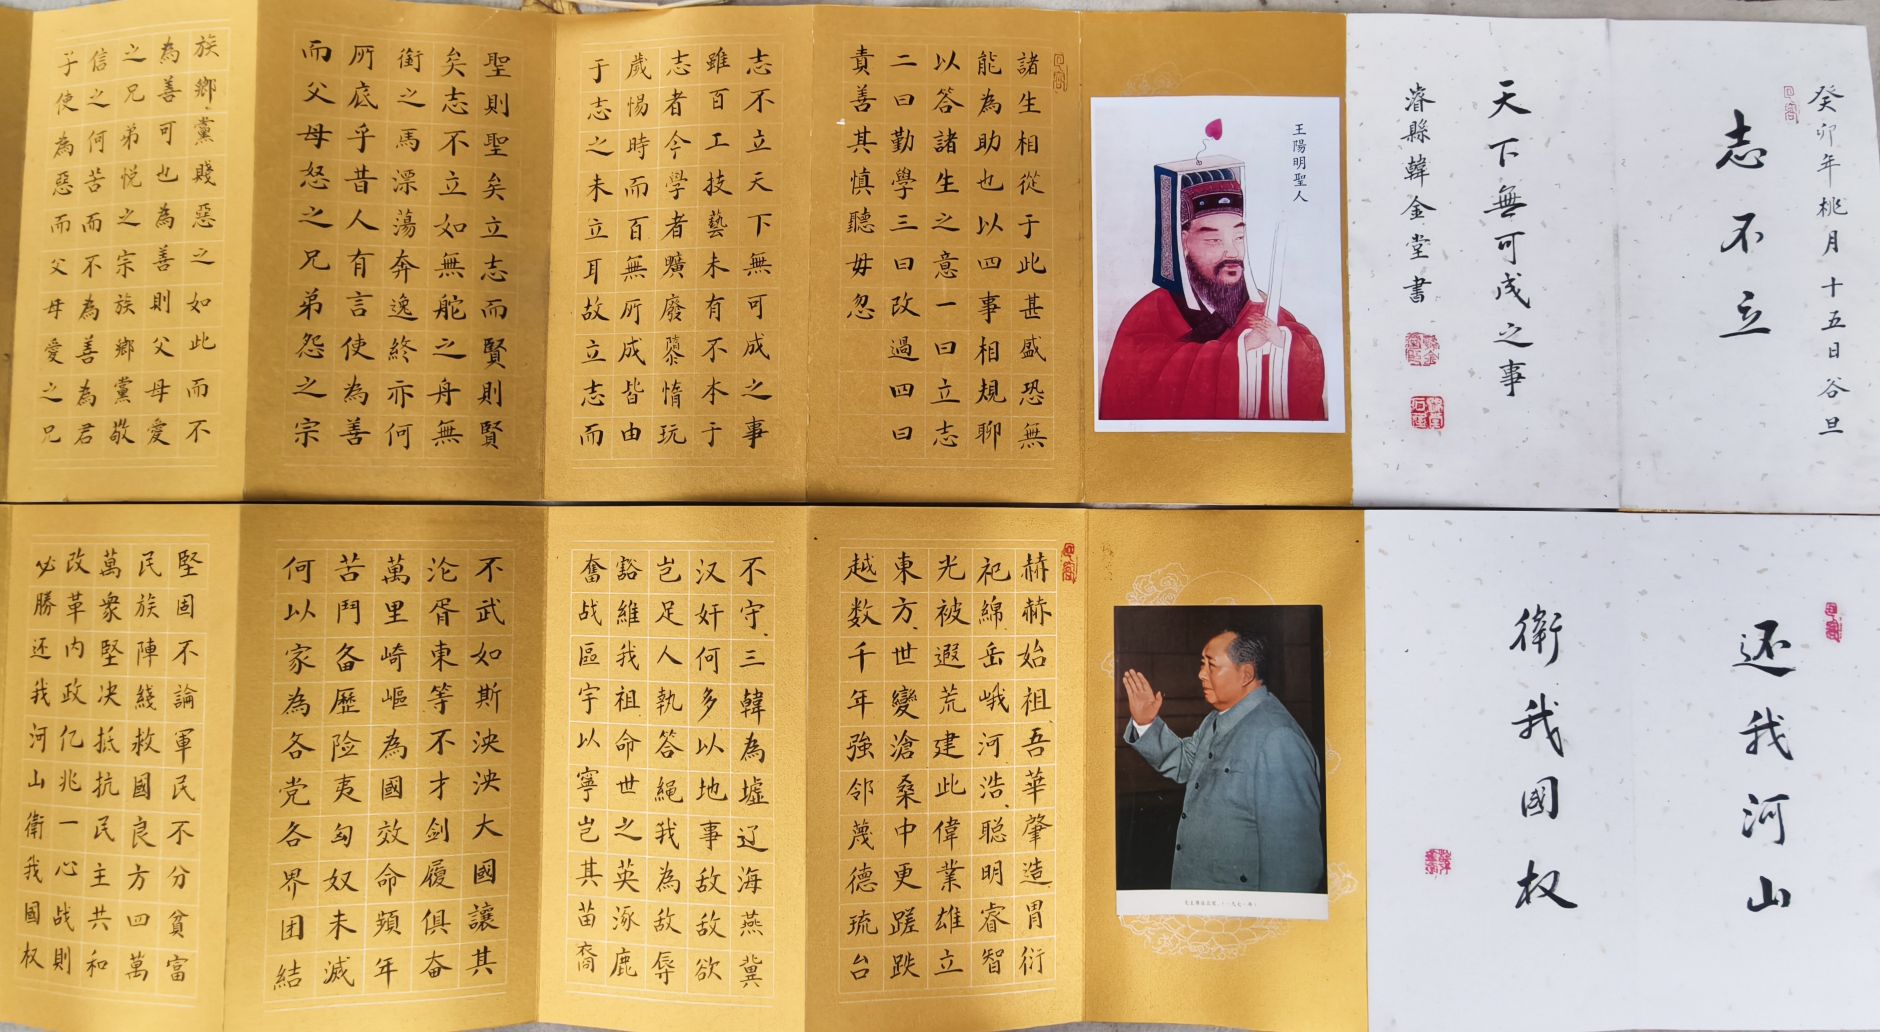 癸卯年桃月十五日谷旦
志不立
天下無可成之事
濬縣韓金堂書
王陽明聖人
諸生相從于此甚盛恐無
能為助也以四事相規聊
以答諸生之意一曰立志
二曰勤學三曰改過四曰
責善其慎聽毋忽
志不立天下無可成之事
雖百工技藝未有不本于
志者今學者曠廢隳惰玩
歲惕時而百無所成皆由
于志之未立耳故立志而
聖則聖矣立志而賢則賢
矣志不立如無舵之舟無
銜之馬漂蕩奔逸終亦何
所底乎昔人有言使為善
而父母怒之兄弟怨之宗
族鄉黨賤惡之如此而不
為善可也為善則父母愛
之兄弟悅之宗族鄉黨敬
信之何苦而不為善為君
子使為惡而父母愛之兄
还我河山
衛我國权
赫赫始祖吾華肇造胃衍
祀綿岳峨河浩聪明睿智
光被遐荒建此偉業雄立
東方世變滄桑中更蹉跌
越数千年強邻蔑德琉台
不守三韓為墟辽海燕冀
汉奸何多以地事敌敌欲
岂足人執笞繩我為敌辱
豁維我祖命世之英涿鹿
奮战區宇以寧岂其苗裔
不武如斯泱泱大國讓其
沦胥東等不才剑履俱奋
萬里崎嶇為國效命頻年
苦鬥备歷险夷匈奴未滅
何以家為各党各界团結
堅固不論軍民不分貧富
民族陣綫救國良方四萬
萬衆堅决抵抗民主共和
改革内政亿兆一心战則
必勝还我河山衛我國权